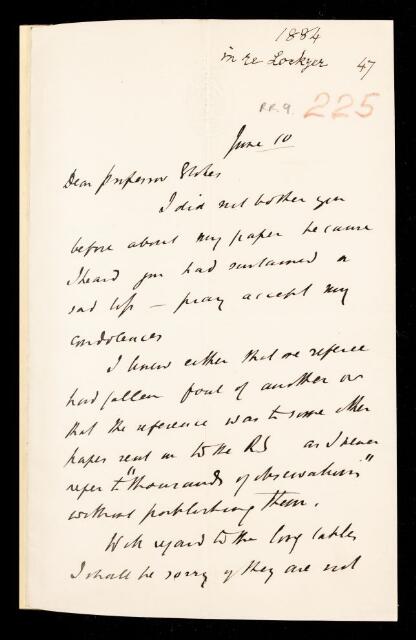 1884
in re Lockyer 47
RR.9. 225
June 10
Dear Professor Stokes
I did not bother you
before about my paper because
I heard you had sustained a
sad loss — pray accept my
condolences
I knew either that one referee
had fallen foul of another or
that the reference was to some other
paper sent in to the RS as I never
refer to "thousands of observations"
without publishing them.
With regard to the long tables
I shall be sorry if they are not